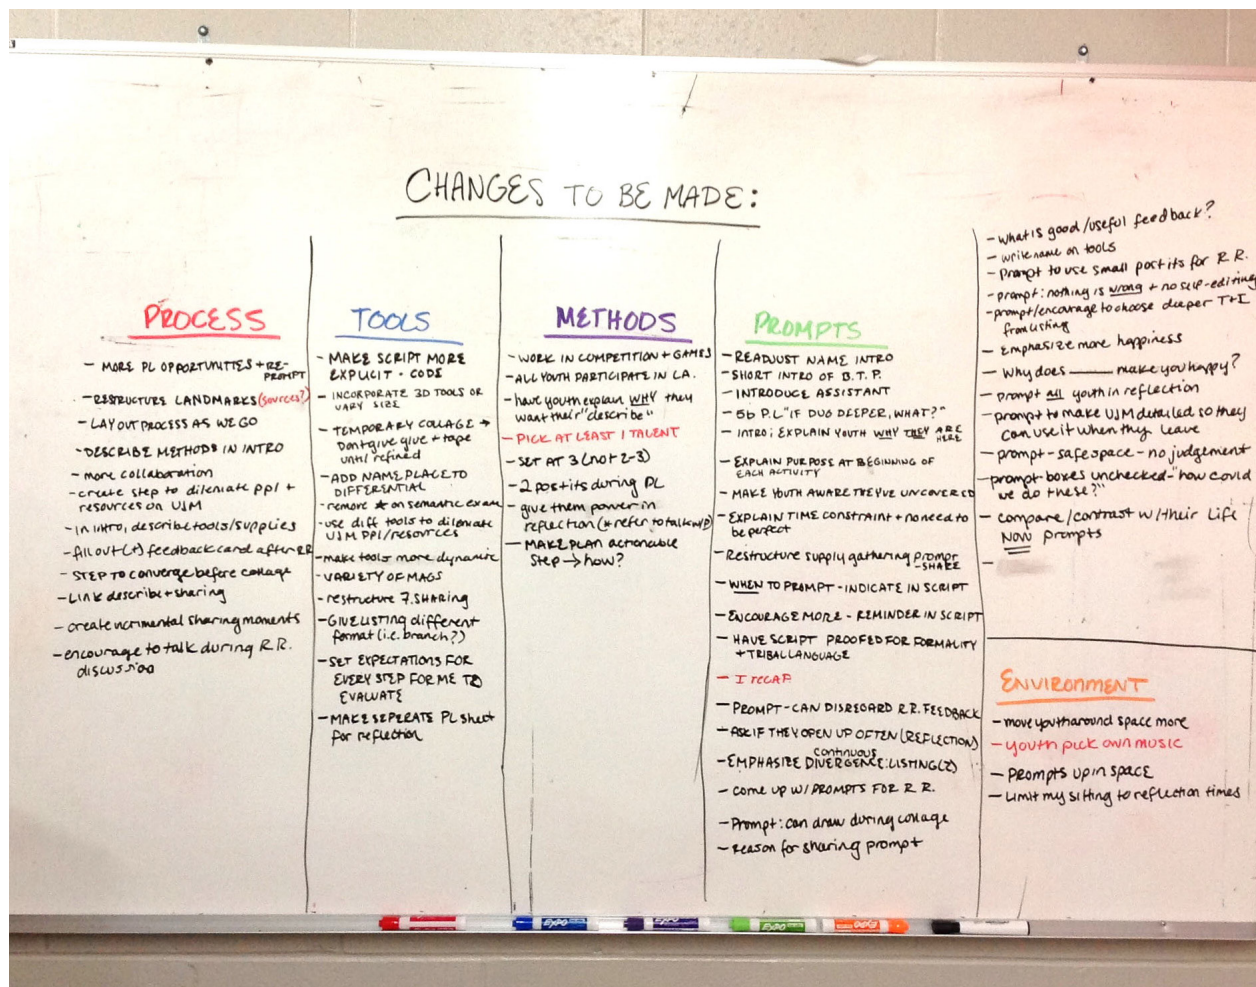 CHANGES TO BE MADE:
PROCESS
- MORE PL OPPORTUNITIES + RE-
PROMPT
- RESTRUCTURE LANDMARKS (sources?)
- LAYOUT PROCESS AS WE GO
- DESCRIBE METHODS IN INTRO
- more collaboration
- create step to dileniate ppl +
resources on USM
- in intro, describe tools/supplies
- fill out (+) feedback card after RR
- STEP TO converge before collage
- Link describe + sharing
- create incrimental sharing moments
- encourage to talk during R.R.
discussion
TOOLS
- MAKE SCRIPT MORE
EXPLICIT - CODE
- INCORPORATE 3D TOOLS OR
VARY SIZE
- TEMPORARY COLLAGE →
Dont give glue + tape
until refined
- ADD NAME PLACE TO
DIFFERENTIAL
- remove ★ on semantic exam
- use diff tools to dileniate
USM PPl/resources
- make tools more dynamic
- VARIETY OF MAGS
- restructure 7. SHARING
- GIVE LISTING different
format (i.e. branch?)
- SET EXPECTATIONS FOR
EVERY STEP FOR ME TO
EVALUATE
- MAKE SEPERATE PL sheet
for reflection
METHODS
- WORK IN COMPETITION + GAMES
- ALL YOUTH PARTICIPATE IN L.A.
- have youth explain WHY they
want their "describe"
- PICK AT LEAST 1 TALENT
- SET AT 3 (not 2-3)
- 2 post its during PL
- give them power in
reflection (* refer to talk w/P)
- MAKE PLAN actionable
Step → how?
PROMPTS
- READJUST NAME INTRO
- SHORT INTRO OF B.T.P.
- INTRODUCE ASSISTANT
- 5b P.L "IF DUG DEEPER, WHAT?"
- INTRO; EXPLAIN YOUTH WHY THEY ARE
HERE
- EXPLAIN PURPOSE AT BEGINNING OF
EACH ACTIVITY
- MAKE YOUTH AWARE THEY'VE UNCOVERED
- EXPLAIN TIME CONSTRAINT + no need to
be perfect
- Restructure supply gathering prompt
- SHARE
- WHEN TO PROMPT - INDICATE IN SCRIPT
- ENCOURAGE MORE - REMINDER IN SCRIPT
- HAVE SCRIPT PROOFED FOR FORMALITY
+ TRIBAL LANGUAGE
- I recap
- PROMPT - CAN DISREGARD R.R. FEEDBACK
- ASK IF THEY OPEN UP OFTEN (REFLECTION)
continuous
- EMPHASIZE DIVERGENCE: LISTING(2)
- come up w/ PROMPTS FOR R R.
- Prompt: can draw during collage
- reason for sharing prompt
- what is good/useful feedback?
- write name on tools
- Prompt to use small post its for R R.
- prompt: nothing is wrong + no self-editing
- prompt/encourage to choose deeper T+I
from listing
- Emphasize more happiness
- Why does ____ make you happy?
- prompt all youth in reflection
- prompt to make USM detailed so they
can use it when they leave
- prompt - safe space - no judgement
- prompt boxes unchecked - "how could
we do these?"
- compare/contrast w/ their Life
NOW prompts
-
ENVIRONMENT
- move youth around space more
- youth pick own music
- Prompts up in space
- Limit my sitting to reflection times
EXPO
EXPO
EXPO
EXPO